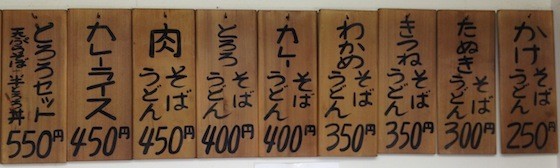 かけ
そば
うどん
250円
たぬき
そば
うどん
300円
きつね
そば
うどん
350円
わかめ
そば
うどん
350円
カレー
そば
うどん
400円
とろろ
そば
うどん
400円
肉
そば
うどん
450円
カレーライス
450円
とろろセット
550円